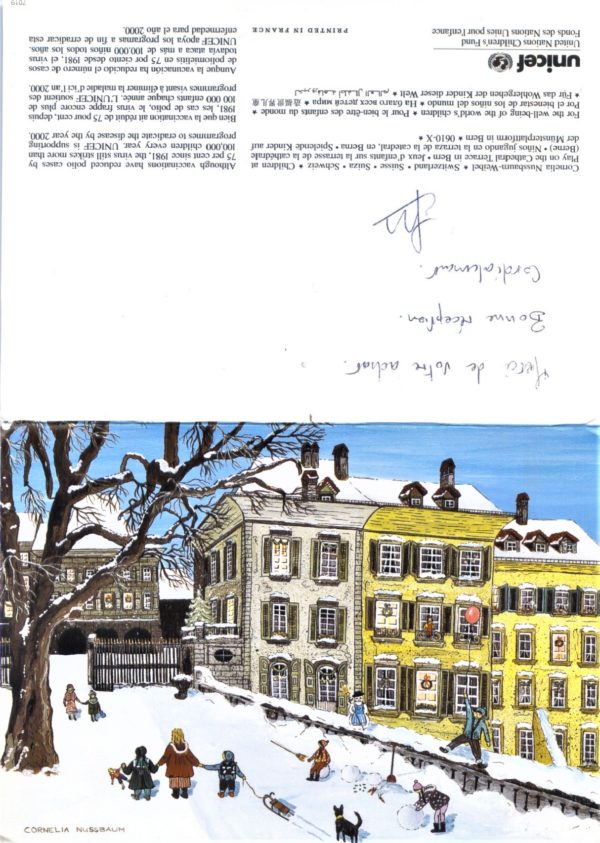 Merci de votre achat.
Bonne réception.
Cordialement.
Cornelia Nussbaum-Weibel ★ Switzerland • Suisse • Suiza • Schweiz ★ Children at
Play on the Cathedral Terrace in Bern • Jeux d'enfants sur la terrasse de la cathédrale
(Berne) • Niños jugando en la terraza de la catedral, en Berna • Spielende Kinder auf
der Münsterplattform in Bern ★ 0610-X
For the well-being of the world's children ★ Pour le bien-être des enfants du monde ★
Por el bienestar de los niños del mundo ★ На благо всех детей мира ★ 造福世界兒童
★ Für das Wohlergehen der Kinder dieser Welt ★
unicef
United Nations Children's Fund
Fonds des Nations Unies pour l'enfance
PRINTED IN FRANCE
Although vaccinations have reduced polio cases by
75 per cent since 1981, the virus still strikes more than
100,000 children every year. UNICEF is supporting
programmes to eradicate the disease by the year 2000.
Bien que la vaccination ait réduit de 75 pour cent, depuis
1981, les cas de polio, le virus frappe encore plus de
100 000 enfants chaque année. L'UNICEF soutient des
programmes visant à éliminer la maladie d'ici l'an 2000.
Aunque la vacunación ha reducido el número de casos
de poliomielitis en 75 por ciento desde 1981, el virus
todavía ataca a más de 100.000 niños todos los años.
UNICEF apoya los programas a fin de erradicar esta
enfermedad para el año 2000.
7019
CORNELIA NUSSBAUM